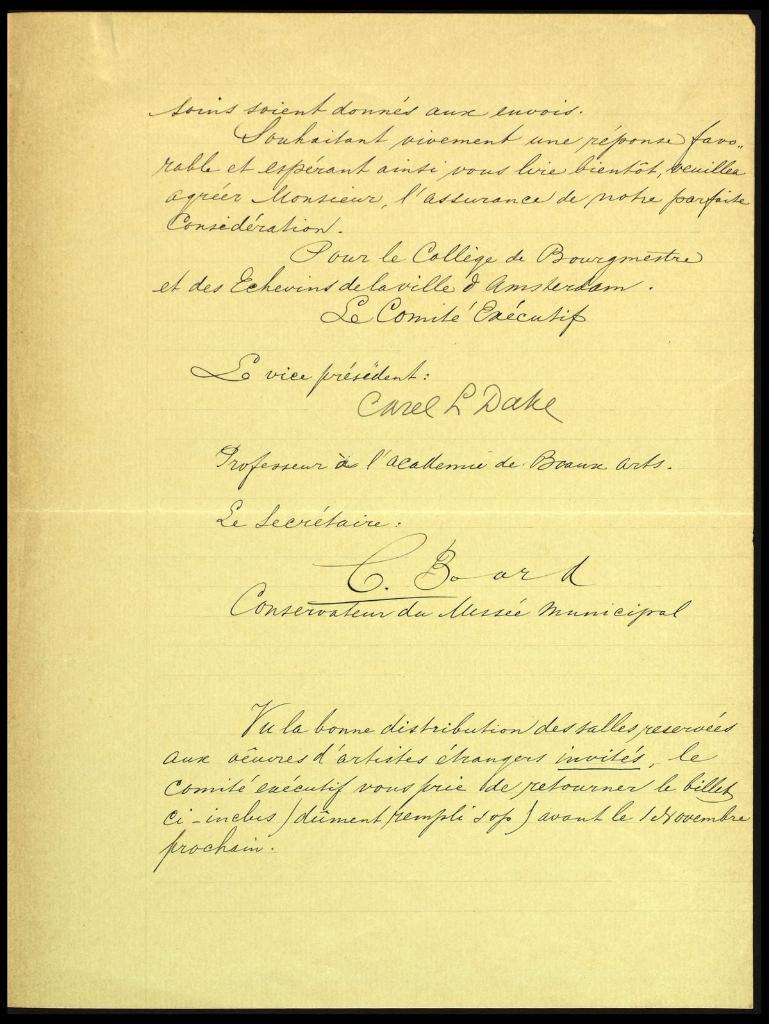 soins soient donnés aux envois.
Souhaitant vivement une réponse favo„
rable et espérant ainsi vous lire bientôt, veuillez
agréer Monsieur, l'assurance de notre parfaite
Considération.
Pour le Collège de Bourgmestre
et des Echevins de la ville d'Amsterdam.
Le Comité Exécutif
Le vice président:
Carel L Dake
Professeur à l'academie de Beaux arts.
Le Secrétaire:
C. Baard
Conservateur du Musée Municipal
Vu la bonne distribution des salles reservées
aux oêuvres d'artistes étrangers invités, le
Comité exécutif vous prie de retourner le billet
ci-inclus (dûment rempli svp) avant le 1 Novembre
prochain.